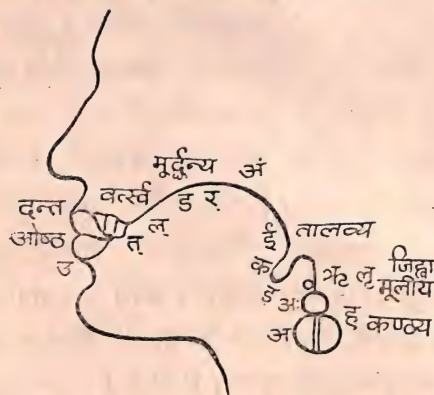 मूर्द्धन्य अं
दन्त वर्त्स्व ड र्
ओष्ठ त् ल्
उ
ई तालव्य
क ऋ लृ जिह्वा
ङ अः मूलीय
अ ह कण्ठ्य